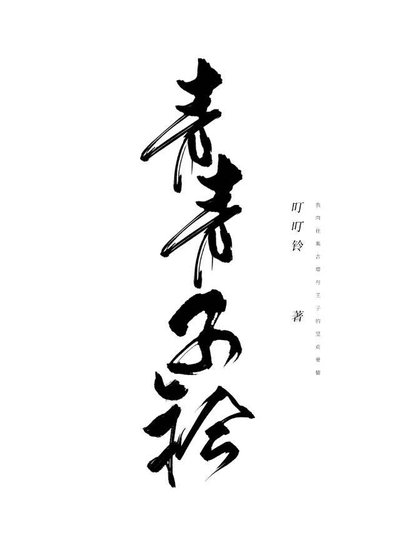 青青子衿
叮叮铃 著